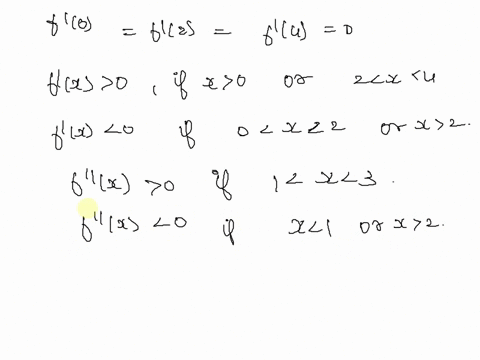 f'(0) = f'(2) = f'(4) = 0
f'(x) > 0 , if x > 0 or 2 < x < 4
f'(x) < 0 if 0 < x < 2 or x > 2.
f''(x) > 0 if 1 < x < 3 .
f''(x) < 0 if x < 1 or x > 2.